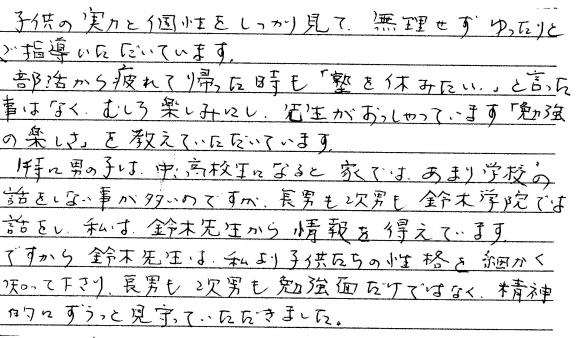 子供の実力と個性をしっかり見て、無理せずゆったりと
ご指導いただいています。
部活から疲れて帰った時も「塾を休みたい。」と言った
事はなく、むしろ楽しみにし、先生がおっしゃっています「勉強
の楽しさ」を教えていただいています。
特に男の子は、中、高校生になると家では、あまり学校の
話をしない事が多いのですが、長男も次男も鈴木学院では
話をし、私は、鈴木先生から情報を得ています。
ですから鈴木先生は、私より子供たちの性格を細かく
知って下さり、長男も次男も勉強面だけではなく、精神
的にずうっと見守っていただきました。